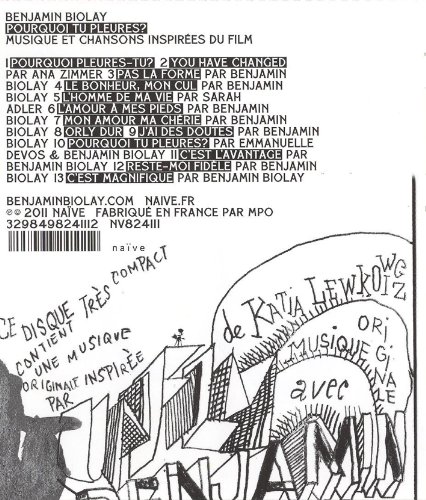 BENJAMIN BIOLAY
POURQUOI TU PLEURES?
MUSIQUE ET CHANSONS INSPIRÉES DU FILM
1 POURQUOI PLEURES-TU? 2 YOU HAVE CHANGED
PAR ANA ZIMMER 3 PAS LA FORME PAR BENJAMIN
BIOLAY 4 LE BONHEUR, MON CUL PAR BENJAMIN
BIOLAY 5 L'HOMME DE MA VIE PAR SARAH
ADLER 6 L'AMOUR À MES PIEDS PAR BENJAMIN
BIOLAY 7 MON AMOUR MA CHÉRIE PAR BENJAMIN
BIOLAY 8 ORLY DUR 9 J'AI DES DOUTES PAR BENJAMIN
BIOLAY 10 POURQUOI TU PLEURES? PAR EMMANUELLE
DEVOS & BENJAMIN BIOLAY 11 C'EST L'AVANTAGE PAR
BENJAMIN BIOLAY 12 RESTE-MOI FIDÈLE PAR BENJAMIN
BIOLAY 13 C'EST MAGNIFIQUE PAR BENJAMIN BIOLAY
BENJAMINBIOLAY.COM NAIVE.FR
℗© 2011 NAÏVE FABRIQUÉ EN FRANCE PAR MPO
3298498241112 NV824111
naïve
CE DISQUE TRÈS COMPACT
CONTIENT
UNE MUSIQUE
ORIGINAIT INSPIRÈE
PAR
de KATIA LEWKOWICZ
MUSIQUE ORIGINALE
avec
BENJAMIN